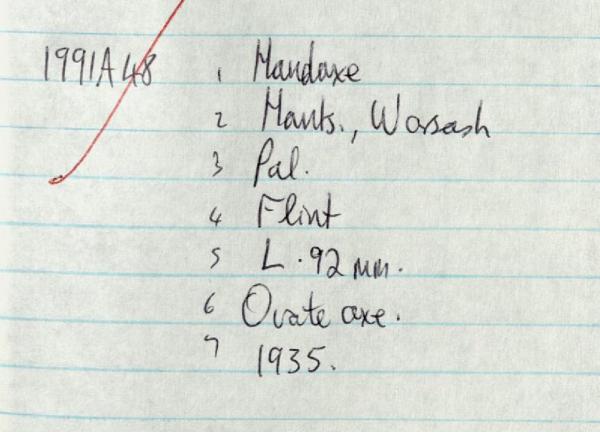 1991A48 1 Handaxe
2 Hants., Warsash
3 Pal.
4 Flint
5 L. 92 mm.
6 Ovate axe.
7 1935.